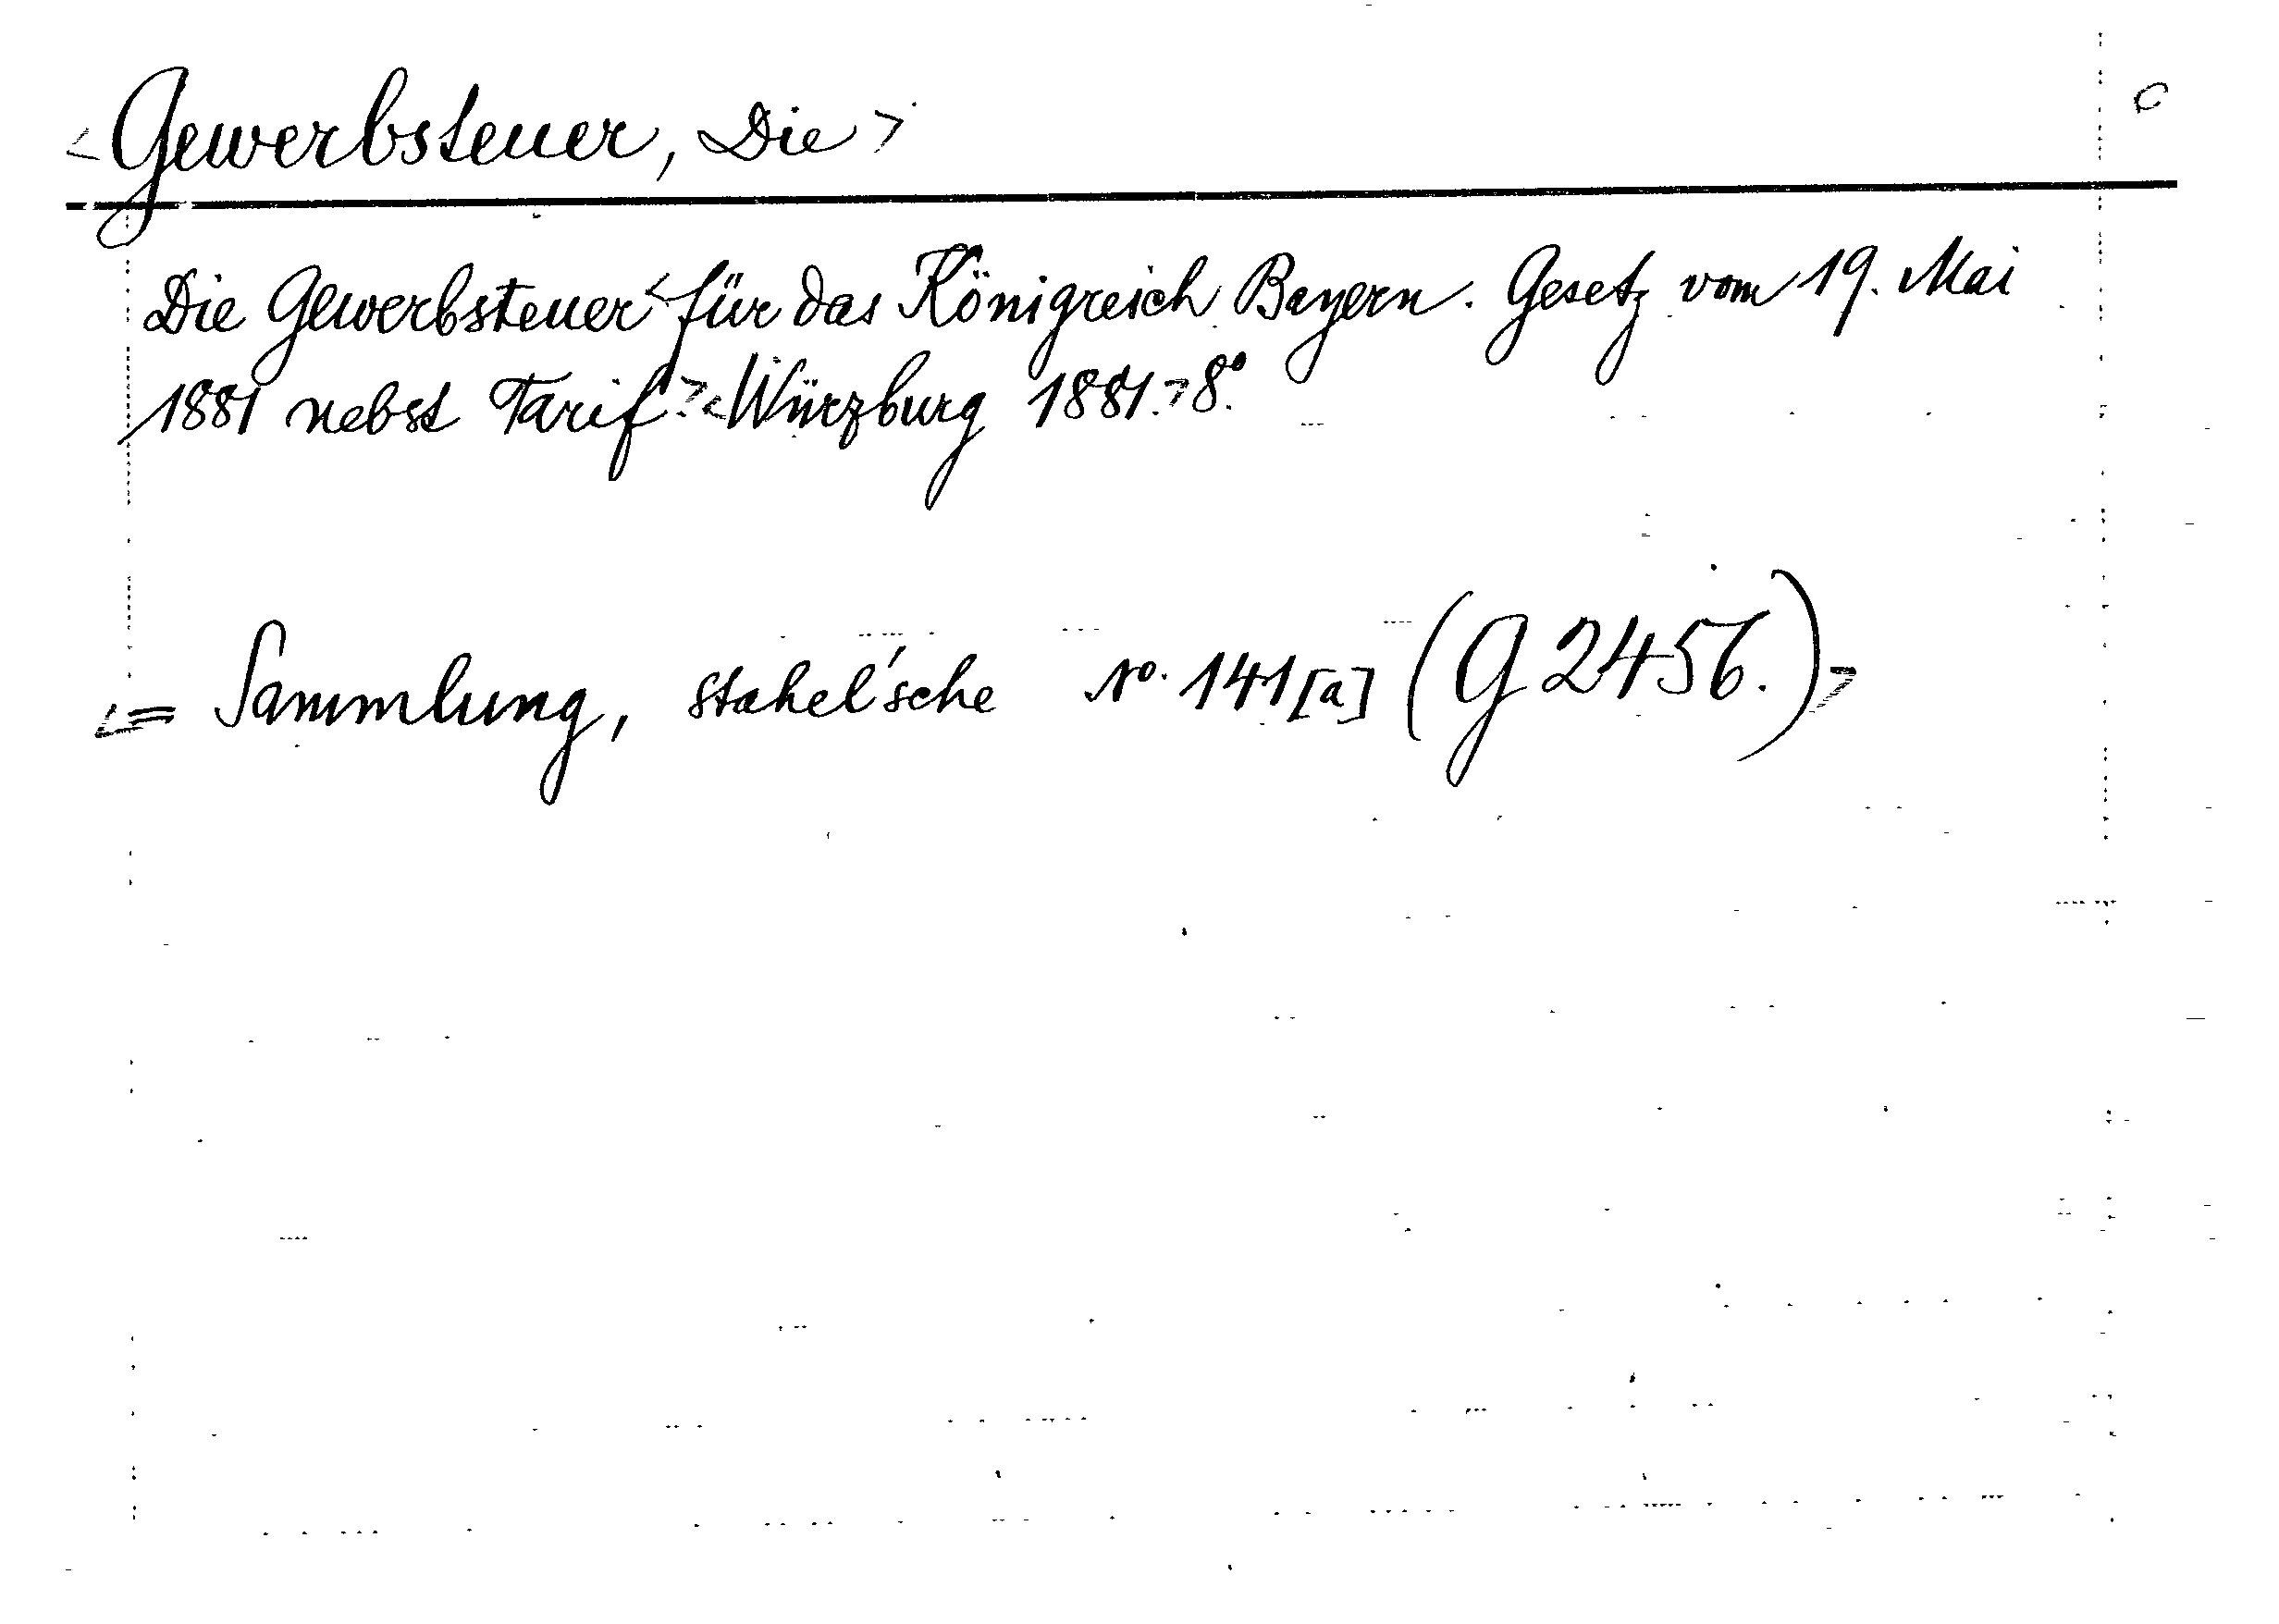 <Gewerbsteuer, Die> C
Die Gewerbsteuer <für das Königreich Bayern. Gesetz vom 19. Mai
1881 nebst Tarif.> <Würzburg 1881.> 8º.
<= Sammlung, stahel'sche Nº. 141[a] (G 2456.)>